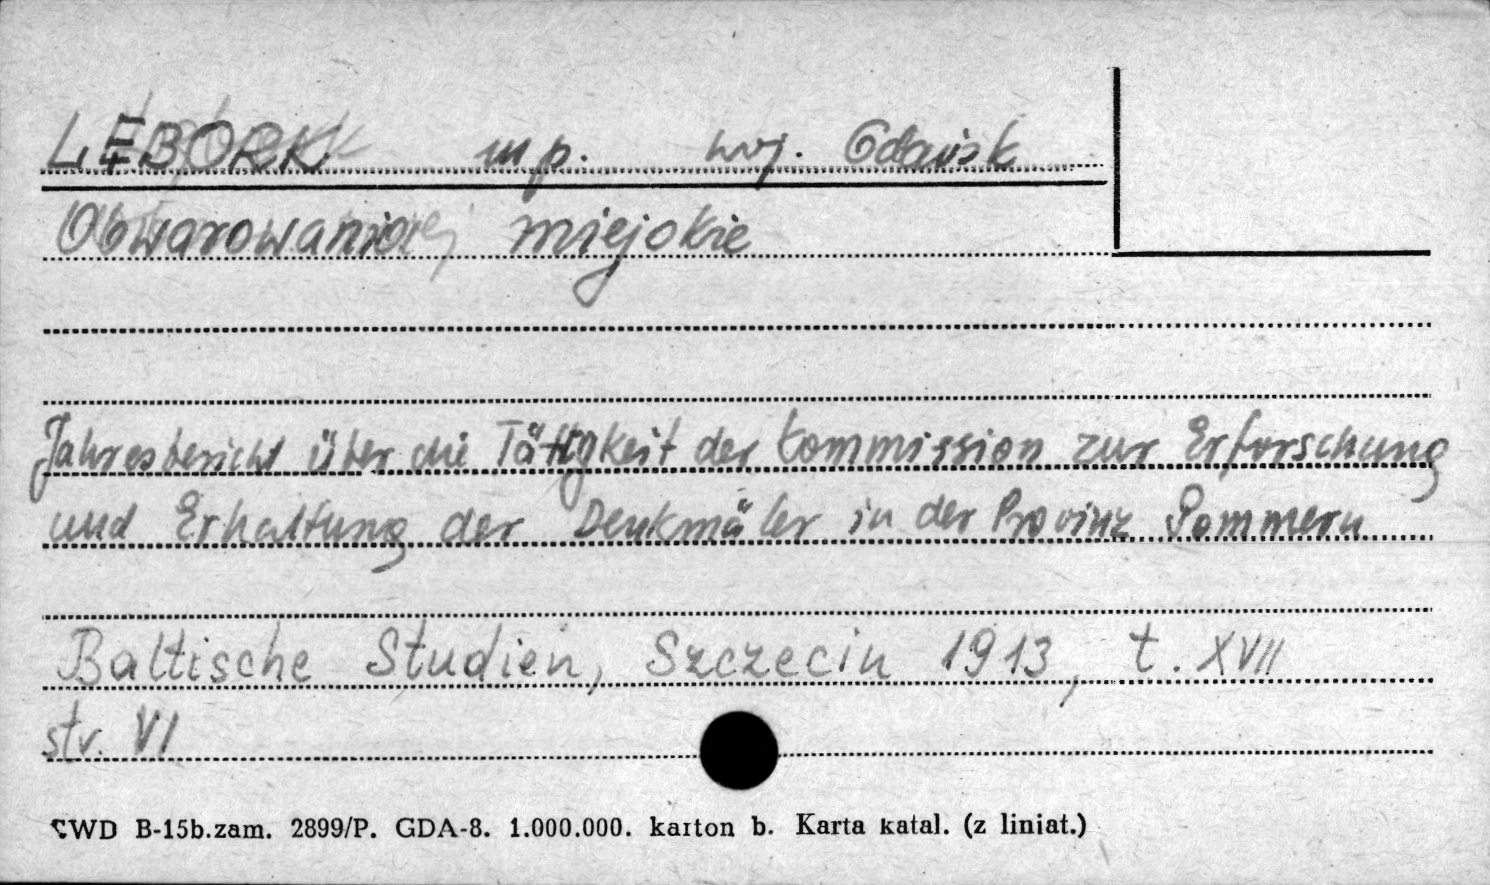 LĘBORK m.p. woj. Gdańsk
Obwarowania miejskie
Jahresbericht über die Tättgkeit der Kommission zur Erforschung
und Erhaltung der Denkmäler in der Provinz Pommern
Baltische Studien, Szczecin 1913, t. XVII
str. VI
CWD B-15b.zam. 2899/P. GDA-8. 1.000.000. karton b. Karta katal. (z liniat.)